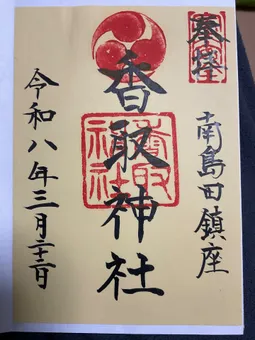 奉拝
南島田鎮座
香取神社
香取
神社
令和八年三月